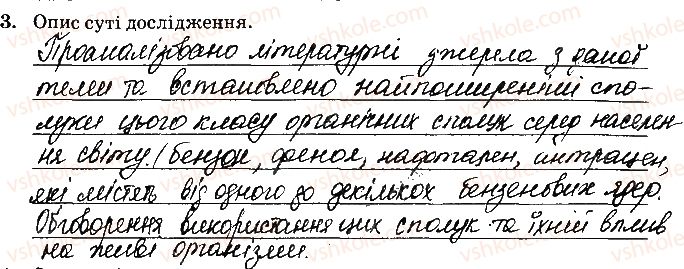 3. Опис суті дослідження.
Проаналізовано літературні джерела з даної
теми та встановлено найпоширеніші спо-
луки цього класу органічних сполук серед населен-
ня світу. (бензол, фенол, нафтален, антрацен,
які містять від одного до декількох бензенових ядер.
Обговорення використання цих сполук та їхній вплив
на живі організми.